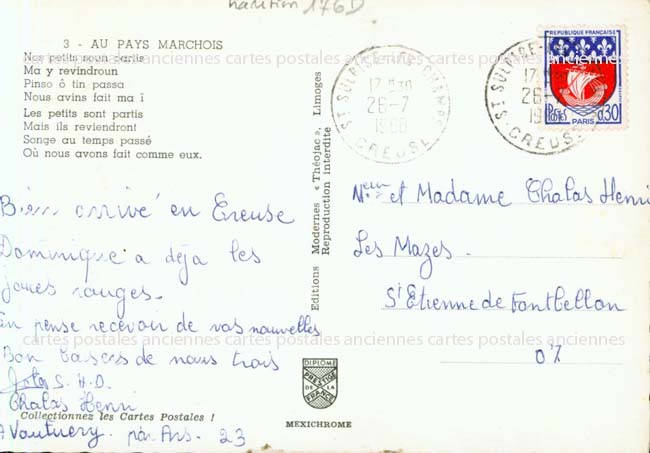 tradition 176D
3 - AU PAYS MARCHOIS
Nos petits soun partis
Ma y revindroun
Pinso ô tin passa
Nous avins fait ma ï
Les petits sont partis
Mais ils reviendront
Songe au temps passé
Où nous avons fait comme eux.
Bien arrivé en Creuse
Dominique a déja les
joues rouges.
En pense recevoir de vos nouvelles
Bon baisers de nous trois
S. H. D.
Chalas Henri
Collectionnez les Cartes Postales !
A Vautuery par Ars. 23
Editions Modernes « Théojac », Limoges
Reproduction interdite
DIPLOME
PRESTIGE
DE LA
FRANCE
MEXICHROME
ST SULPICE-LES-CHAMPS
17 H 30
26-7
1966
CREUSE
ST SULPICE-
17 H
26-7
19
CREUSE
REPUBLIQUE FRANÇAISE
Postes
0,30
PARIS
et Madame Chalas Henri
Les Mazes.
St Etienne de Fontbellon
07
cartes postales anciennes cartes postales anciennes cartes postales anciennes
cartes postales anciennes cartes postales anciennes cartes postales anciennes